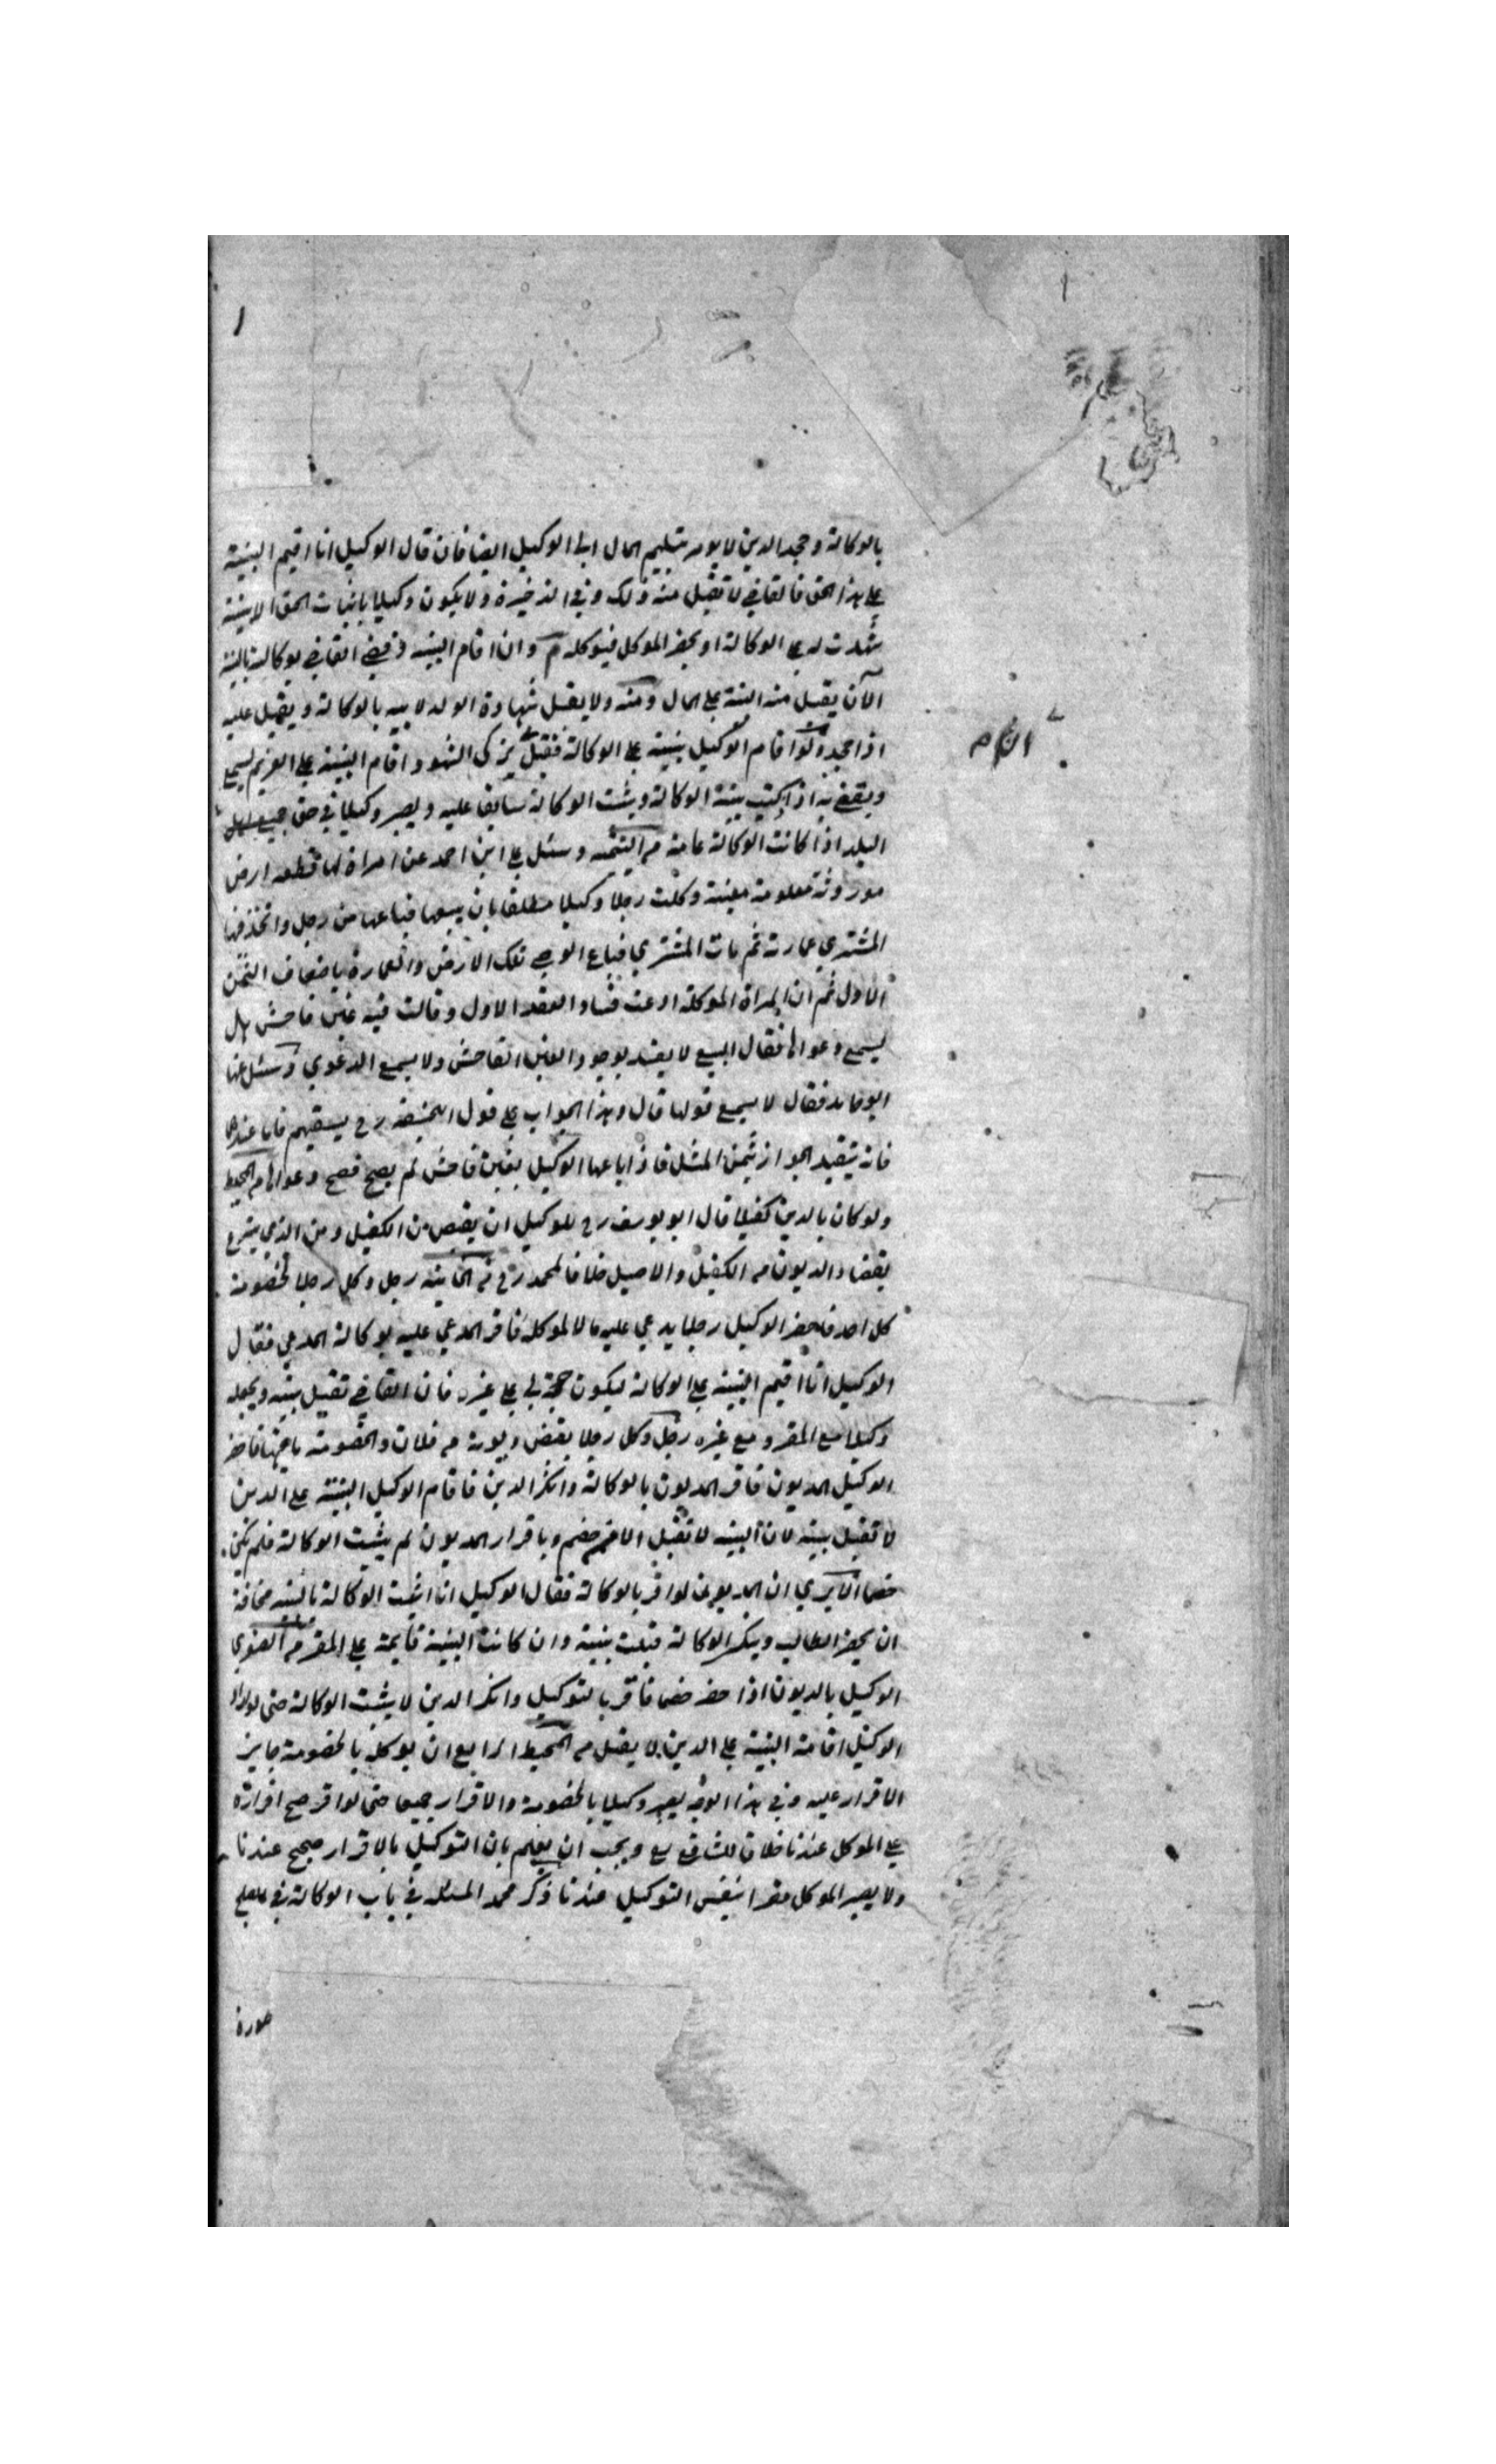 بالوكالة وجحد الدين لا يومر بتسليم المال الى الوكيل ايضا فان قال الوكيل انا اقيم البينة
على هذا الحق فالقاضي لا تقبل منه ذلك وفي الذخيرة ولا يكون وكيلا باثبات الحق الا ببينة
شهدت له على الوكالة او يحضر الموكل فيوكله م وان اقام البينة وقضى القاضي بوكالته بالبينة
الآن يقبل منه البينة على المال ومنه ولا يقبل شهادة الولد لابيه بالوكالة ويقبل عليه
اذا جحد ولو اقام الوكيل ببينة على الوكالة فقبل يزكى الشهود اقام البينة على الغريم يسمع
ويقضي به اذا بينة الوكالة ويثبت الوكالة سابقا عليه ويصير وكيلا في حق جميع اهل
البلد اذا كانت الوكالة عامة م اليتيمة وسئل علي ابن احمد عن امراة لها قطعه ارض
موروثة معلومة معينة وكلت رجلا وكيلا مطلقا بان يبيعها فباعها من رجل واتخذ فيها
المشتري عمارته ثم مات المشتري فباع الوصي تلك الارض والعمارة باضعاف الثمن
الاول ثم ان المراة الموكلة ادعت فساد العقد الاول وقالت فيه غبن فاحش هل
يسمع دعواها فقال البيع لا يفسد بوجود الغبن الفاحش ولا يسمع الدعوي وسئل عنها
ابو حامد فقال لا يسمع قولها قال وهذا الجواب على قول ابيحنيفه رح يستقيم فاما عندهما
فانه يتقيد الجواز بثمن المثل فاذا باعها الوكيل بغبن فاحش لم يصح فصح دعواها م المحيط
ولو كان بالدين كفيلا قال ابو يوسف رح للوكيل ان يقبض من الكفيل ومن الذي يتبرع
بقضاء الديون م الكفيل والاصيل خلافا لمحمد رح م الخانية رجل وكل رجلا لخصومة
كل احد فاحضر الوكيل رجلا يدعي عليه مالا لموكله فاقر المدعي عليه بوكالة المدعي فقال
الوكيل انا اقيم البينة على الوكالة ليكون حجة لي على غيره فان القاضي تقبل بينته ويجعله
وكيلا مع المقر ومع غيره رجل وكل رجلا بقبض ديونه م فلان والخصومة فاحضر
الوكيل المديون فاقر المديون بالوكالة وانكر الدين فاقام الوكيل البينة على الدين
لا تقبل بينته لان البينة لا تقبل الا من خصم وباقرار المديون لم يثبت الوكالة فلم يكن
خصما الا يري ان المديون لو اقر بالوكالة فقال الوكيل انا اثبت الوكالة بالبينه مخافة
ان يحضر الطالب وينكر الوكالة قبلت بينته وان كانت البينة قايمة على المقر م الصغري
الوكيل بالديون اذا احضر خصما فاقر بالتوكيل وانكر الدين لا يثبت الوكالة حتى لو اراد
الوكيل اقامة البينة على الدين لا يقبل م المحيط الرابع ان يوكله بالخصومة جايز
الاقرار عليه وفي هذا الوجه يصير وكيلا بالخصومة والاقرار جميعا حتى لو اقر صح اقراره
على الموكل عندنا خلافا للشافعي ويجب ان يعلم بان التوكيل بالاقرار صحيح عندنا
ولا يصير الموكل مقرا بنفس التوكيل عندنا ذكر محمد المسئله في باب الوكالة في
صورة